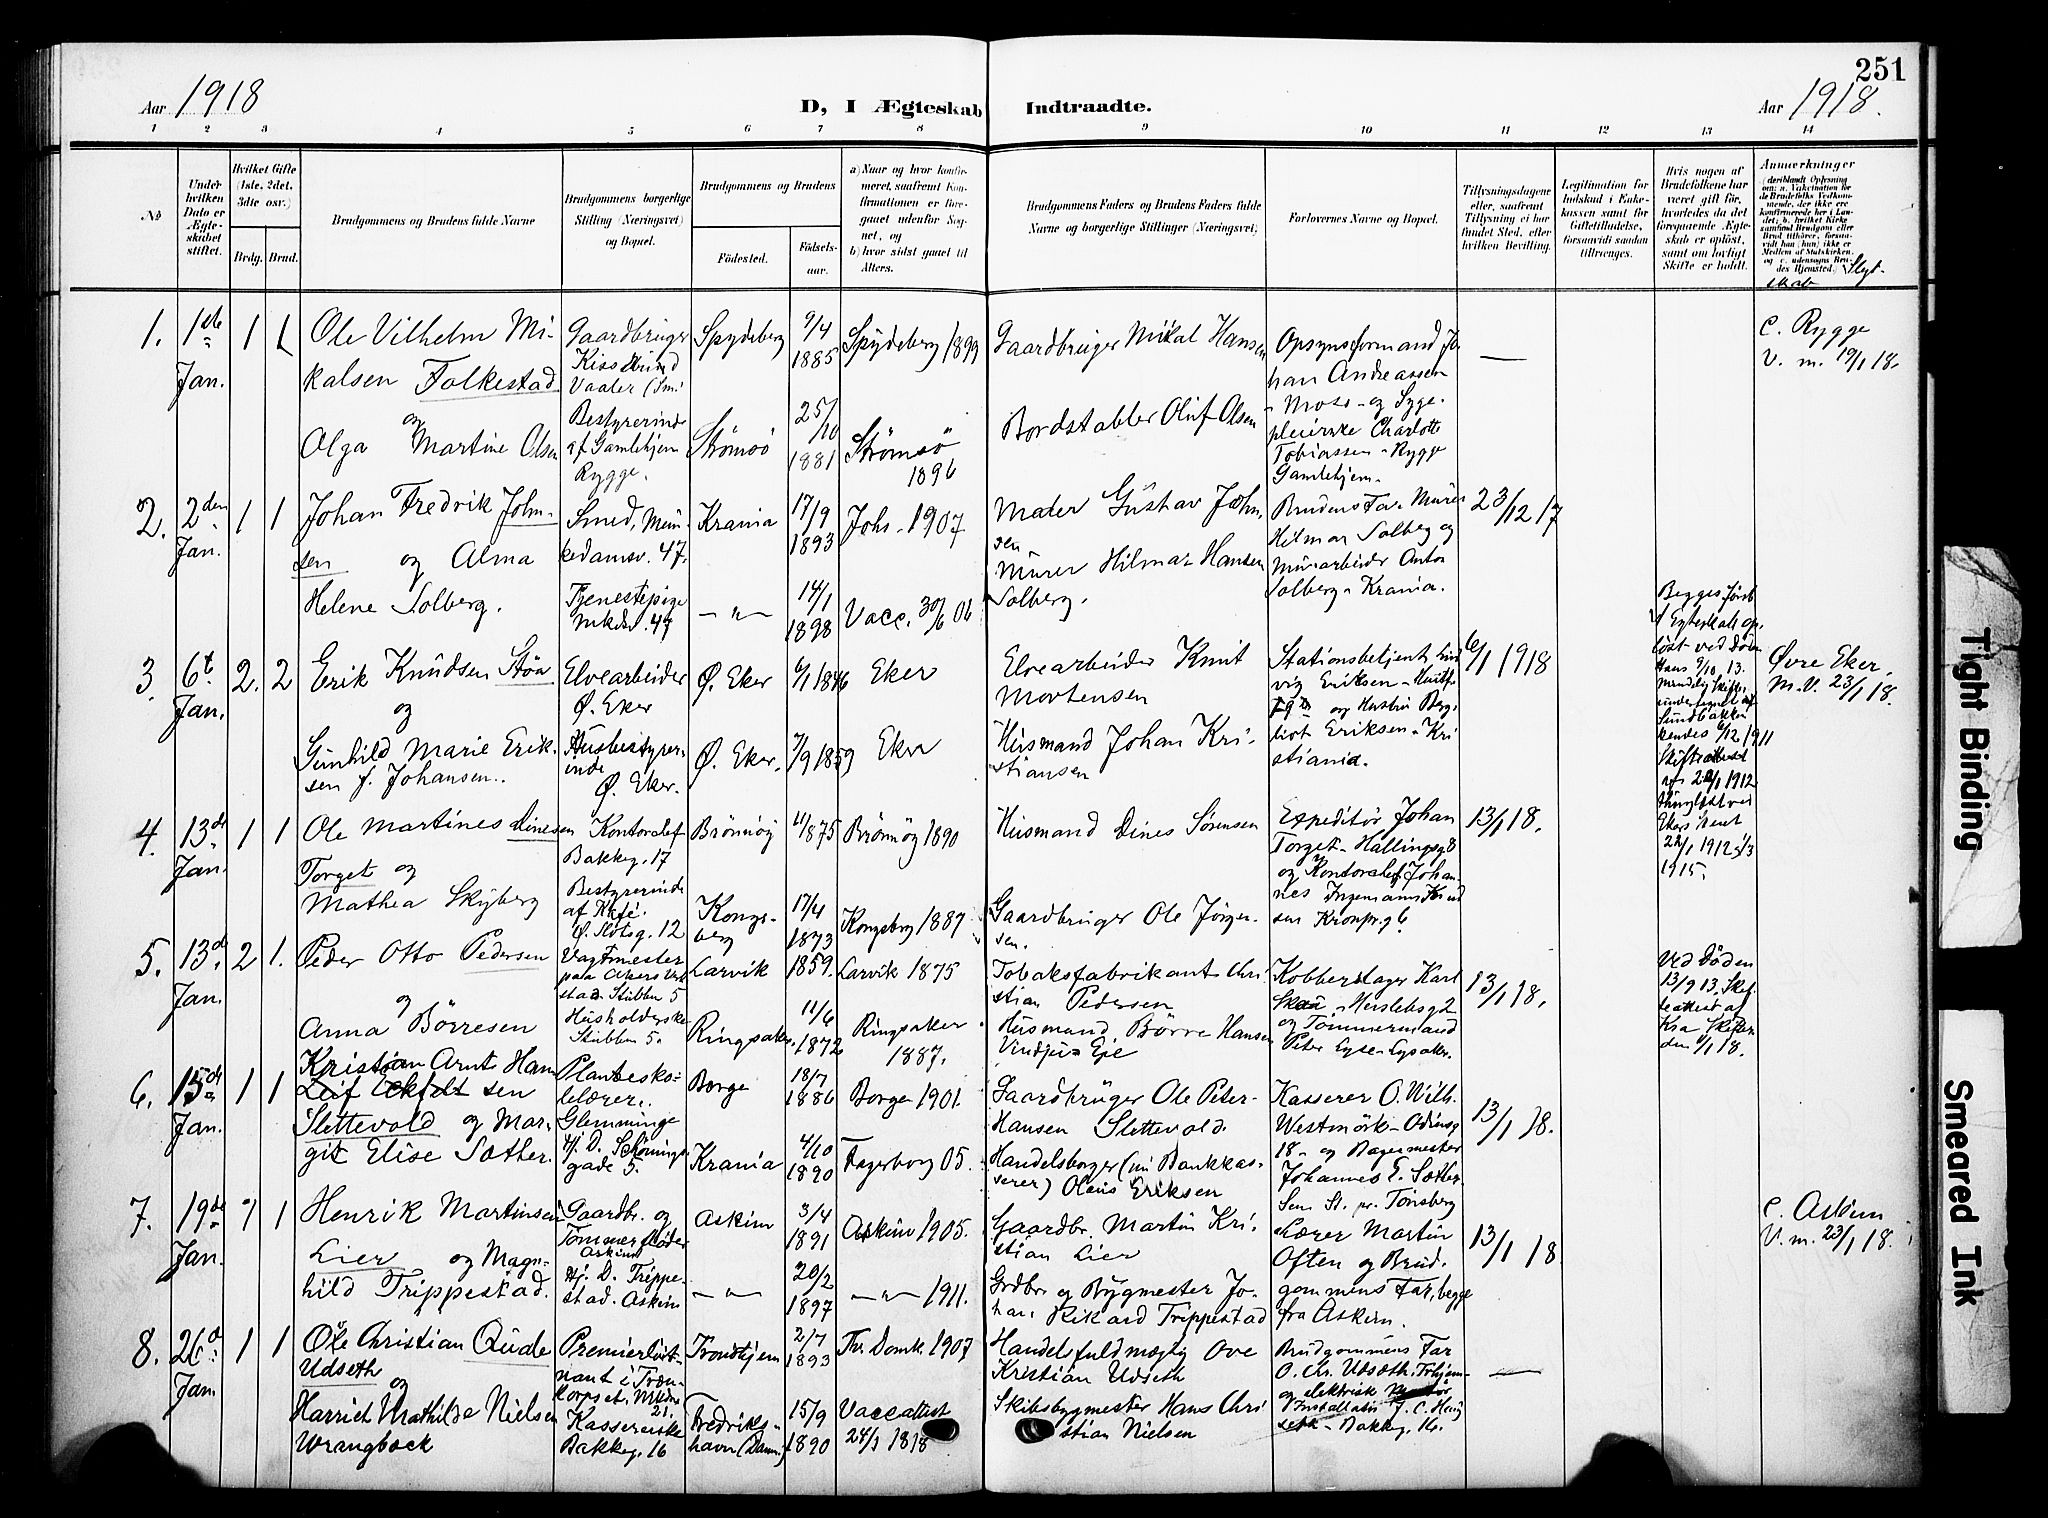 251
Aar 1918
D, I Ægteskab Indtraadte.
Aar 1918.
1 2 3 4 5 6 7 8 9 10 11 12 13 14
No
Under hvilken Dato er Ægteskabet stiftet.
Hvilket Gifte (1ste, 2det, 3dte osv.)
Brdg. Brud.
Brudgommens og Brudens fulde Navne
Brudgommens borgerlige Stilling (Næringsvei) og Bopæl.
Brudgommens og Brudens
Fødested.
Fødselsaar.
a) Naar og hvor konfirmeret, saafremt Konfirmationen er foregaaet udenfor Sognet, og
b) hvor sidst gaaet til Alters.
Brudgommens Faders og Brudens Faders fulde Navne og borgerlige Stillinger (Næringsvei)
Forlovernes Navne og Bopæl.
Tillysningsdagene eller, saafremt Tillysning ei har fundet Sted, efter hvilken Bevilling.
Legitimation for Indskud i Enkekassen samt for Giftetilladelse, forsaavidt saadan tiltrænges.
Hvis nogen af Brudefolkene har været gift før, hvorledes da det forgaaende Ægteskab er opløst, samt om lovligt Skifte er holdt.
Anmerkninger
Slegtskab
1. 1ste Jan. 1 1
Ole Vilhelm Mikalsen Folkestad
og
Olga Martine Olsen
Gaardbruger
Vaaler (Sml
Bestyrerinde
af Gamlehjem
Rygge.
Spydeberg 9/4 1885 Spydeberg 1899
Strømsö 25/10 1881 Strømsö 1896
Gaardbruger Mikal Hansen
Bordstabler Oluf Olsen
Opsynsformand Johan Andreassen
- Moss - og Sygepleierske Charlotte
Tobiassen - Rygge
Gamlehjem -
—
c. Rygge
V. m. 19/1 18.
2. 2den Jan. 1 1
Johan Fredrik Johnsen og Alma
Helene Solberg.
Smed, Munkedamsv. 47.
Tjenestepige
Mkdsv. 47
Krania 17/9 1893 Johs - 1907
— „ — 14/1 1898 Vacc. 30/6 06
Maler Gustav Johnsen
Murer Hilmar Hansen
Solberg.
Brudens Far - Murer
Hilmar Solberg og
Murarbeider Anton
Solberg - Krania.
23/12 17
3. 6te Jan. 2. 2
Erik Knudsen Støa
og
Gunhild Marie Eriksen f. Johansen.
Elvearbeider
Ø. Eker
Husbestyrerinde
Ø. Eker.
Ø. Eker 6/1 1846 Eker
Ø. Eker. 7/9 1859 Eker
Elvearbeider Knut
Mortensen
Husmand Johan Kristiansen
Stationsbetjent Ludvig Eriksen -
og Hustru Bergliot Eriksen - Kristiania.
6/1 1918
Begges første
Egteskab opløst ved Døden
Hans 9/10 13.
Øvre Eker
M. V. 23/1 18.
4. 13de Jan. 1 1
Ole Martines Dinesen
Torget og
Mathea Skyberg
Kontorchef
Bakkeg. 17
Bestyrerinde
af Kafé.
Ø. Slotsg. 12
Brønnøy 11/8 75 Brønnøy 1890
Kongsberg 17/4 1873 Kongsberg 1887
Husmand Dines Sørensen
Gaardbruger Ole Jørgensen.
Expeditør Johan
Torget - Hallingsg 8
og Kontorchef Johannes Ingemann Knudsen Kronpr.g 6.
13/1 18.
5. 13de Jan. 2 1.
Peder Otto Pedersen
og
Anna Børresen
Vagtmester
paa Akers Verksted. Stubben 5
Husholderske
Stubben 5.
Larvik 1859. Larvik 1875
Ringsaker. 11/6 1872 Ringsaker 1887.
Tobaksfabrikant Christian Pedersen
Husmand Børre Hansen
Eje
Kobberslager Karl
Skau - Herslebsg 2
og Tømmermand
Peter Lyse - Lysaker.
13/1 18.
Ved Døden
13/9 13. Skifteattest af
Kra Skifteret
den 4/1 18.
6. 15de Jan. 1 1
Kristian Arnt Hansen
Slettevold og Margit Elise Sæther.
Planteskolelærer.
Glemminge
Hj. D. Schøningsgade 5.
Borge 18/7 1886 Borge 1901.
Krania 4/10 1890 Fagerborg 05.
Gaardbruger Ole Peter
Hansen Slettevold.
Handelsborger (nu Bankkasserer) Olaus Eriksen
Kasserer O. Wilh.
Westmörk - Odinsg
18 - og Bagermester
Johannes E. Sæther.
Sem St. pr. Tönsberg
13/1 18.
7. 19de Jan. 1 1
Henrik Martinsen
Lier og Magnhild Trippestad.
Gaardbr. og
Tømmerfløder
Askim
Hj. D. Trippestad. Askim
Askim 3/4 1891 Askim 1905.
— „ — 20/2 1897 — „ — 1911.
Gaardbr. Martin Kristian Lier
Grdbr. og Bygmester Johan Rikard Trippestad
Lærer Martin
Often og Brudgommens Far, begge
fra Askim.
13/1 18
c. Askim
V. m. 23/1 18.
8. 26de Jan. 1 1
Ole Christian Qude
Udseth
og
Harriet Mathilde Nielsen
Wrangbæck
Premierløitnant i Trænkorpset. Mkdsv 21.
Kassererske
Bakkeg. 16
Trondhjem 2/7 1893 Th. Domk. 1907
Fredrikshavn (Danm.) 15/9 1890 Vaccattest 24/1 1818
Handelsfuldmægtig Ove
Kristian Udseth
Skibsbygmester Hans Christian Nielsen
Brudgommens Far
O. Chr. Udseth. Trhjem
og elektrisk
Installatør J. C. Haugseth - Bakkeg. 16.
—
Tight Binding
Smeared Ink